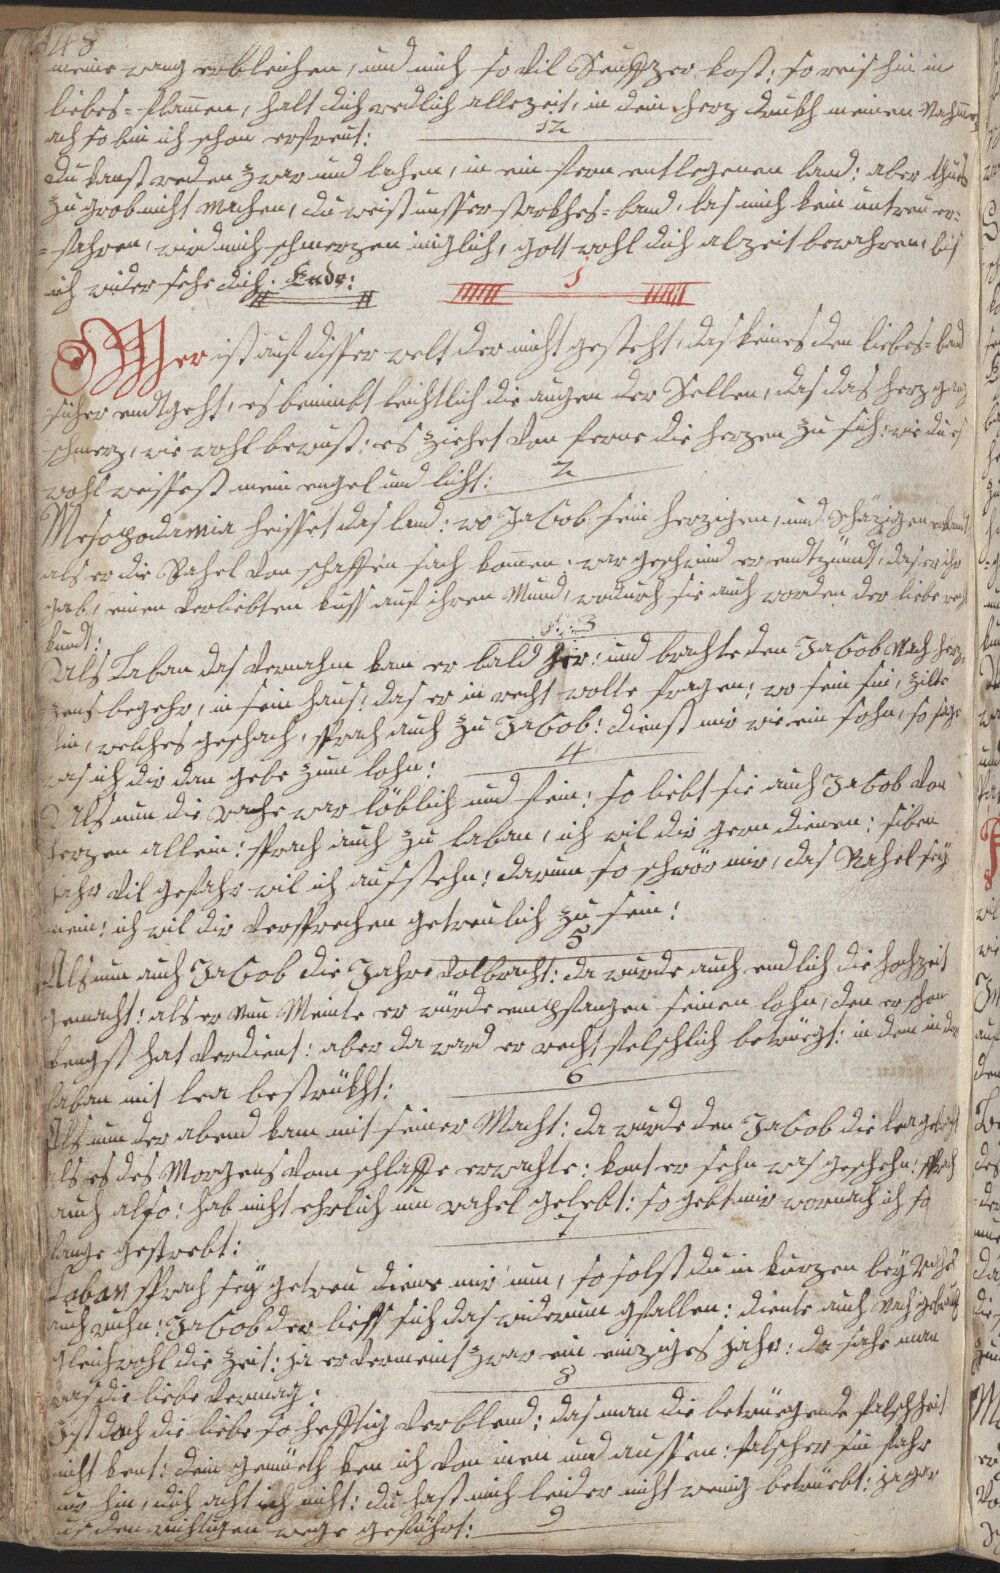 148
meine wang erbleichen, und mich so vil Seuffzer kost: so reis hin in
liebes-flam̄en, halt dich redlich allezeit, in dein herz drukh meinen Nahmen
ach so bin ich schon erfreut:
12
du kanst reden zwar und lachen, in ein fern entlegenen land: aber thues
zu grob nicht machen, du weist unsser starkhes-band, las mich kein untreu er-
-fahren, wird mich schmerzen iniglich, gott wohl dich alzeit bewahren, bis
ich wider sehe dich: Ende:
1
Wer ist auf disser welt der nicht gesteht, das keines den liebes-band
sicher endtgeht, es benimbt leichtlich die augen der Sellen, das das herz ganz
schmerz, wie wohl bewust: es ziehet von ferne die herzen zu sich: wie du es
wohl weissest mein engel und licht:
2
Mesopodamia heisset das land: wo Jacob sein herzigen, und schäzigen erkant
als er die Rahel von schaffen sach kom̄en: war geschwind er endtzündt, das er ihr
gab, einen verliebten kuss auf ihren Mund, wodurch sie auch worden der liebe recht
kundt:
3
Als Laban das vernahm kam er bald her: und brachte den Jacob Nach herz-
zens begehr, in sein haus: das er in recht wolte fragen: wo sein sin, zilte
hin, welches geschach, sprach auch zu Jacob: dienst mir wie ein sohn, so sage
was ich dir dan gebe zum lohn:
4
Als nun die rache war löblich und fein: so liebt sie auch Jacob von
herzen allein: sprach auch zu laban, ich wil dir gern dienen: siben
jahr vil gefahr wil ich ausstehn: darum so schwör mir, das Rahel sey
mein: ich wil dir versprechen getreulich zu sein:
5
Als nun auch Jacob die Jahre volbracht: da wurde auch endlich die hochzeit
gemacht: als er nun Meinte er würde empfangen seinen lohn, den er schon
lengst hat verdient: aber da ward er recht felschlich betrüegt: in dem in der
laban mit lea bestrükht:
6
Als nun der abend kam mit seiner Macht: da wurde den Jacob die lea gebracht
als es des Morgens vom schlaffe erwachte: kont er sehn was geschehn: sprach
auch also: hab nicht ehrlich um rahel gelebt: so gebt mir wornach ich so
lange gestrebt:
7
Laban sprach sey getreu diene mir nun, so solst du in kurzen bey Rahel
auch ruhn: Jacob der liess sich das widerum gfallen: diente auch nach gebrauch
gleichwohl die Zeit: ja er vermeint zwar ein einziges jahr: da sahe man
was die liebe vermag:
8
Ist doch die liebe so hefftig verblend: das man die betrüegende falschheit
nicht kent: dein gemüeth ken ich von inen und aussen: falscher sin fahr
nur hin, dich acht ich nicht: du hast mich leider nicht wenig betrüebt: ja gar
auf den nichtigen wege geführt:
9